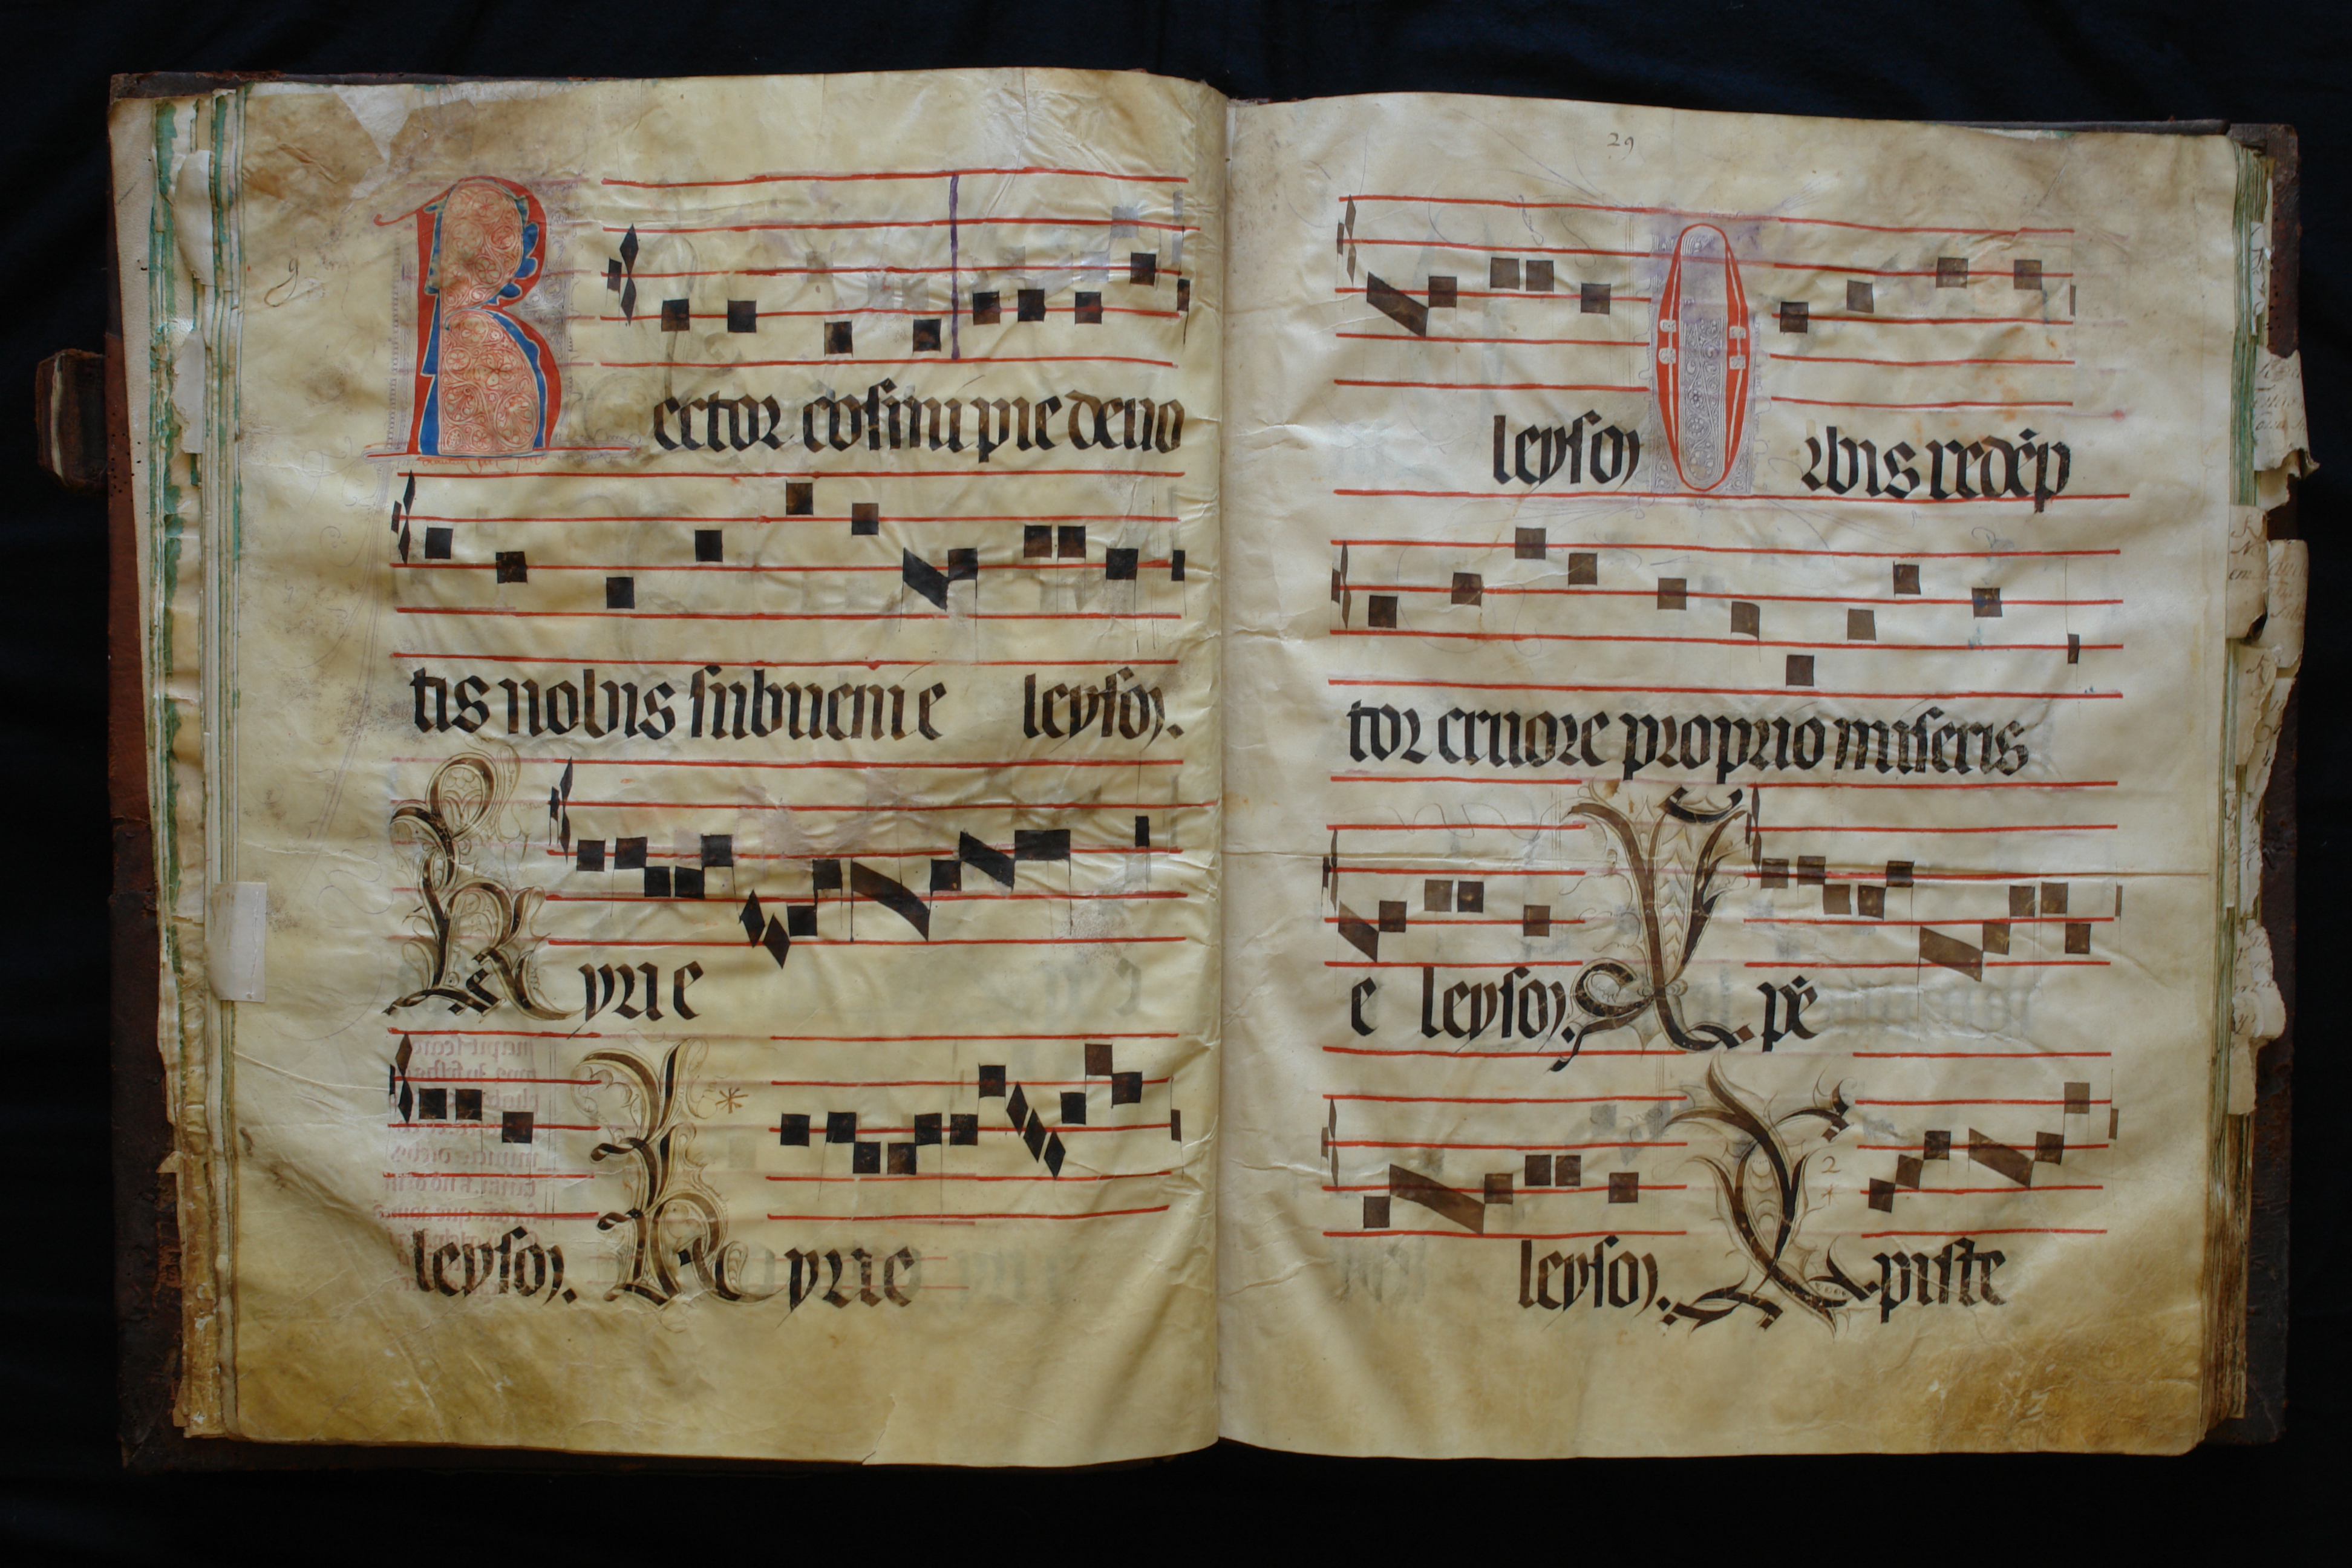 Rector cosmi pie deuo
tis nobis subueni e leyson.
Kyrie
leyson. Kyrie
29
leyson Orbis redēp
tor cruore proprio miseris
e leyson. Xpē
leyson. Xpiste